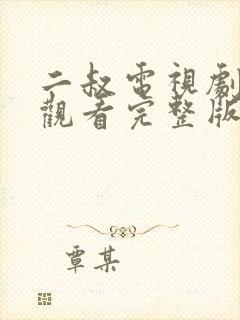 二叔電視劇
觀看完整版
覃某